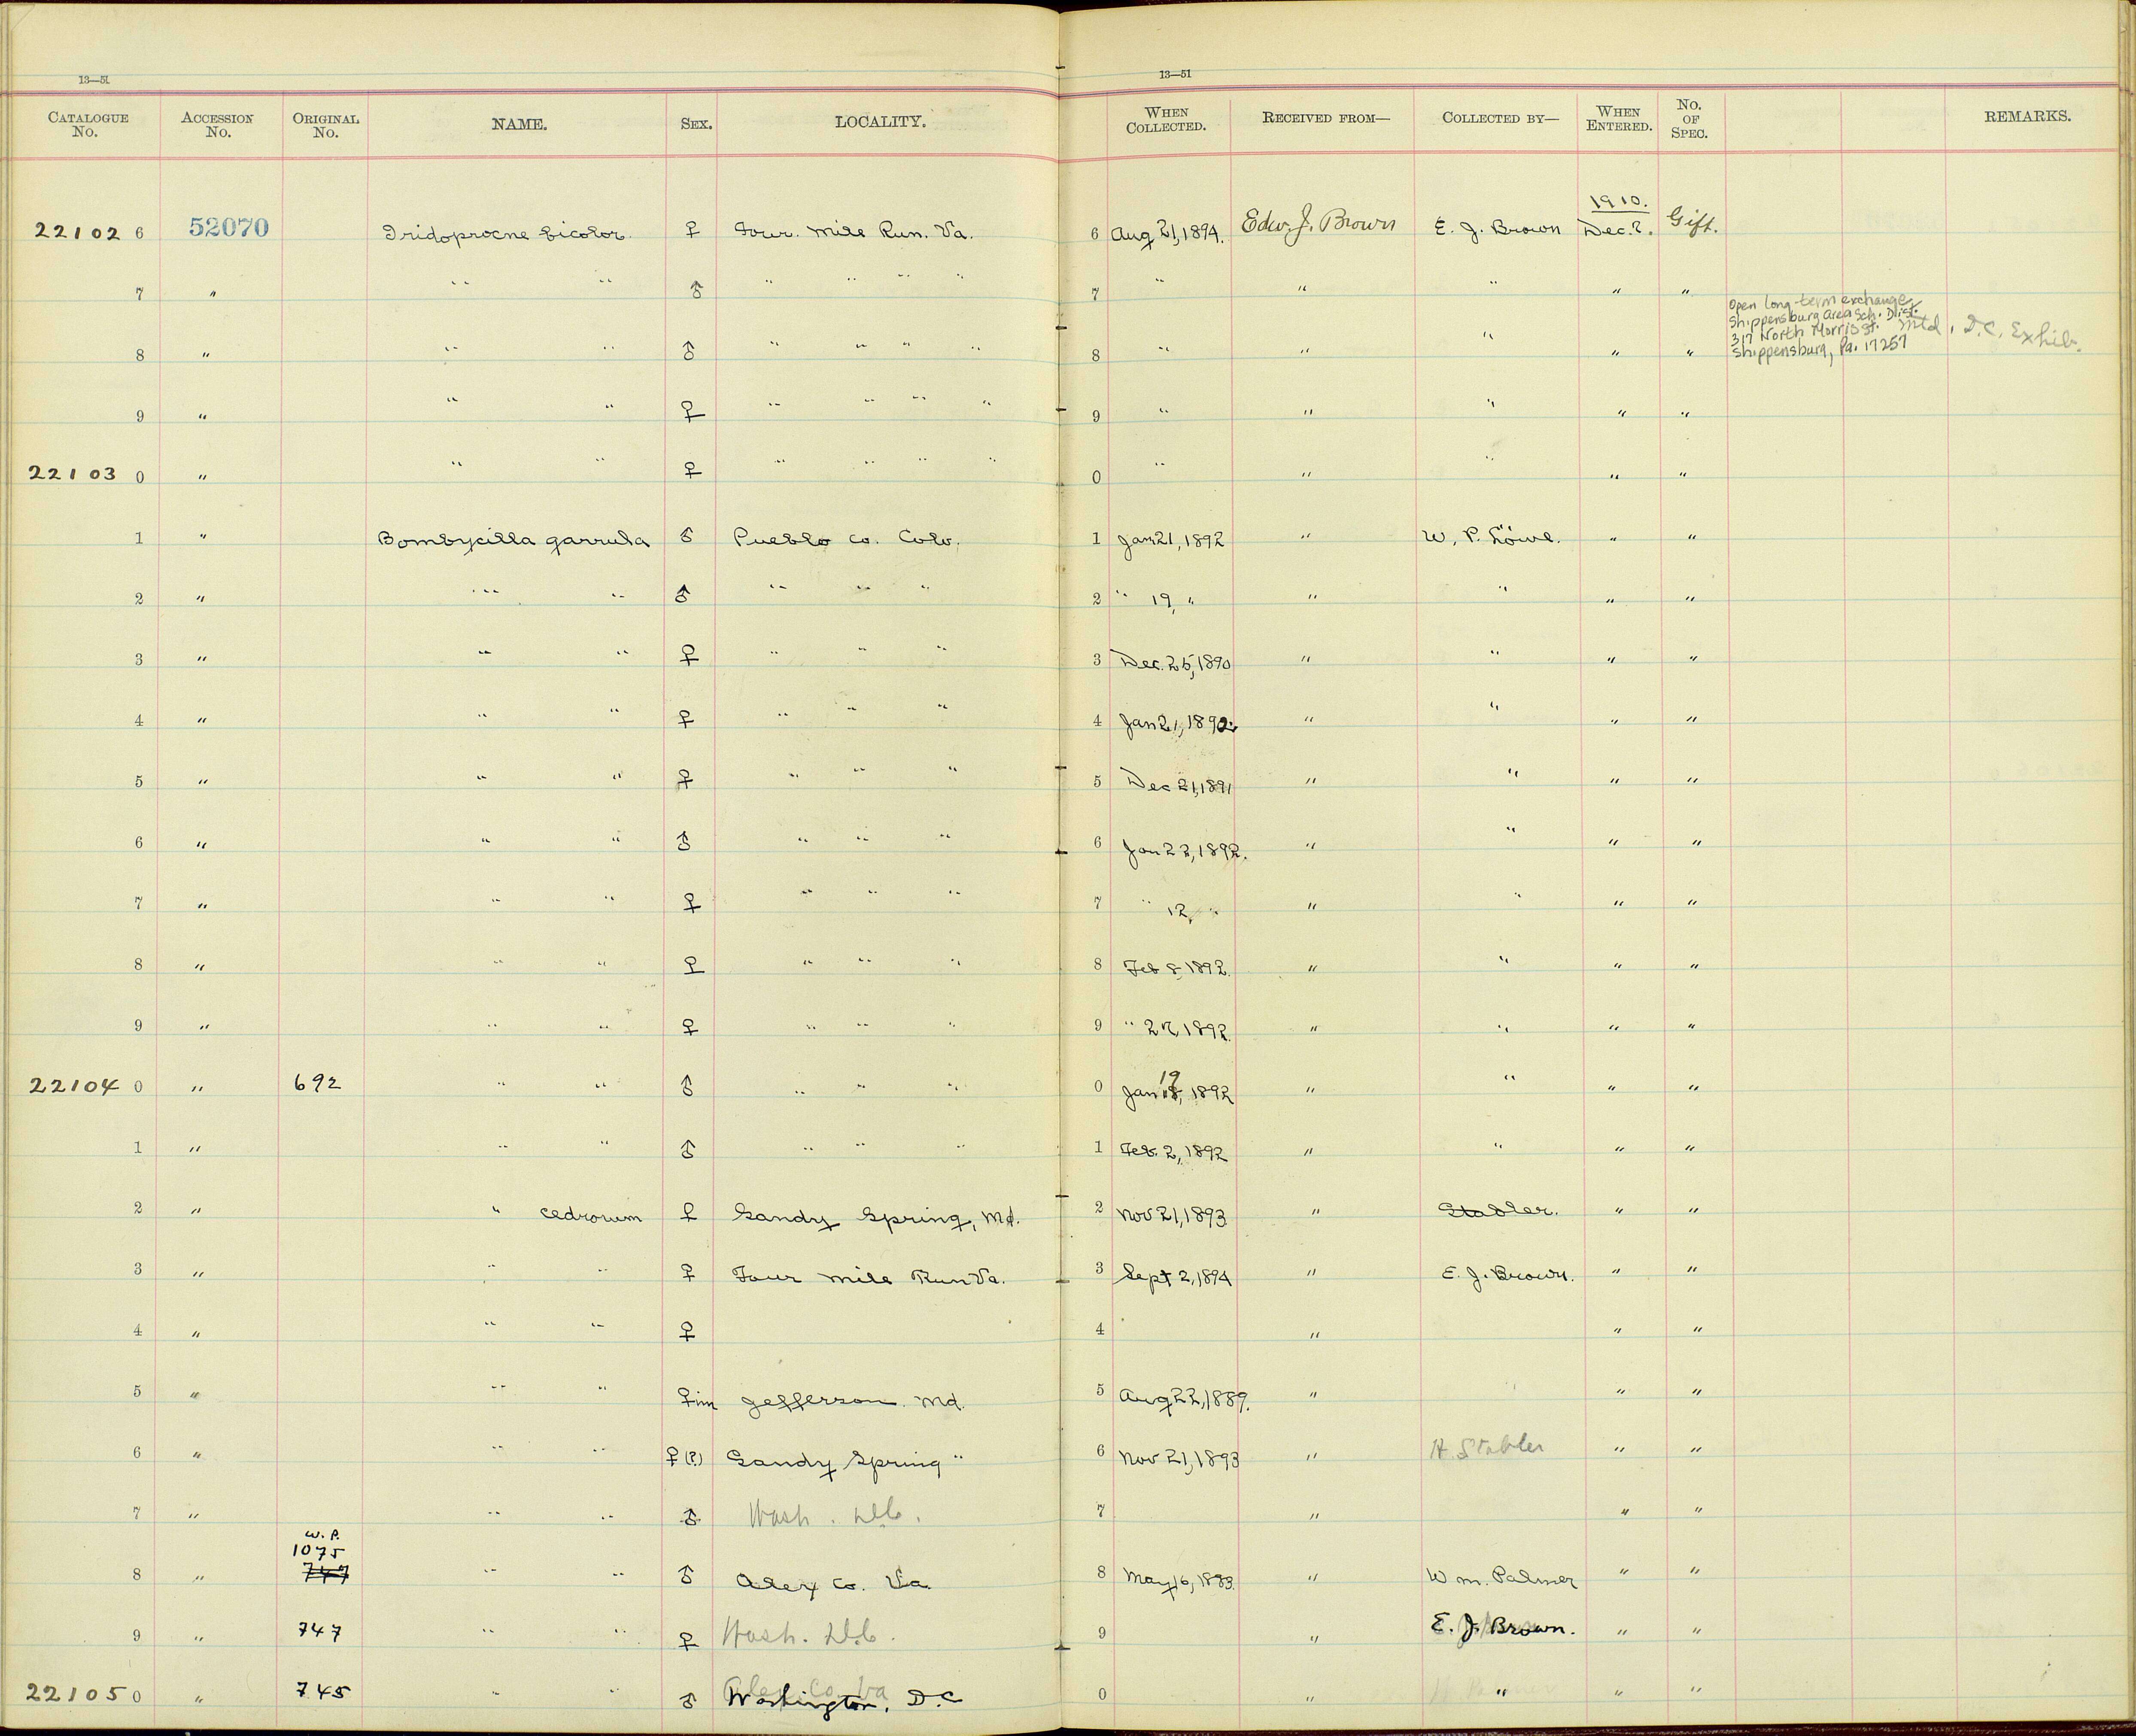 13—51
13—51
CATALOGUE No. ACCESSION No. ORIGINAL No. NAME. SEX. LOCALITY. WHEN COLLECTED. RECEIVED FROM— COLLECTED BY— WHEN ENTERED. No. OF SPEC. REMARKS.
1910.
22102 6 52070 Iridoprocne bicolor. ♀ Four. Mile Run. Va. 6 Aug 21, 1894. Edw. J. Brown E. J. Brown Dec. 2. Gift.
7 " " " ♂ " " " " 7 " " " " "
Open long-term exchange,
Shippensburg Area Sch. Dist.
317 North Morris St. Mtd, D.C. Exhib.
Shippensburg, Pa. 17257
8 " " " ♂ " " " " 8 " " " " "
9 " " " ♀ " " " " 9 " " " " "
22103 0 " " " ♀ " " " " 0 " " " " "
1 " Bombycilla garrula ♂ Pueblo Co. Colo. 1 Jan 21, 1892 " W. P. Löwe. " "
2 " " " ♂ " " " 2 " 19, " " " " "
3 " " " ♀ " " " 3 Dec. 25, 1890 " " " "
4 " " " ♀ " " " 4 Jan 21, 1892 " " " "
5 " " " ♀ " " " 5 Dec 21, 1891 " " " "
6 " " " ♂ " " " 6 Jan 22, 1892. " " " "
7 " " " ♀ " " " 7 " 12, " " " " "
8 " " " ♀ " " " 8 Feb 8, 1892. " " " "
9 " " " ♀ " " " 9 " 27, 1892. " " " "
22104 0 " 692 " " ♂ " " " 0 Jan 19, 1892 " " " "
1 " " " ♂ " " " 1 Feb. 2, 1892 " " " "
2 " " cedrorum ♀ Sandy Spring, Md. 2 Nov 21, 1893 " Stabler. " "
3 " " " ♀ Four Mile Run Va. 3 Sept 2, 1894 " E. J. Brown. " "
4 " " " ♀ 4 " " "
5 " " " ♀ im Jefferson. Md. 5 Aug 22, 1889. " " "
6 " " " ♀ (?) Sandy Spring " 6 Nov 21, 1893 " H. Stabler " "
7 " " " ♂ Wash. D.C. 7 " " "
W. P.
1075
8 " 747 " " ♂ Alex Co. Va. 8 May 16, 1883. " Wm. Palmer " "
9 " 747 " " ♀ Wash. D.C. 9 " E. J. Brown. " "
Alex. Co. Va
22105 0 " 745 " " ♂ Washington, D.C 0 " " " "